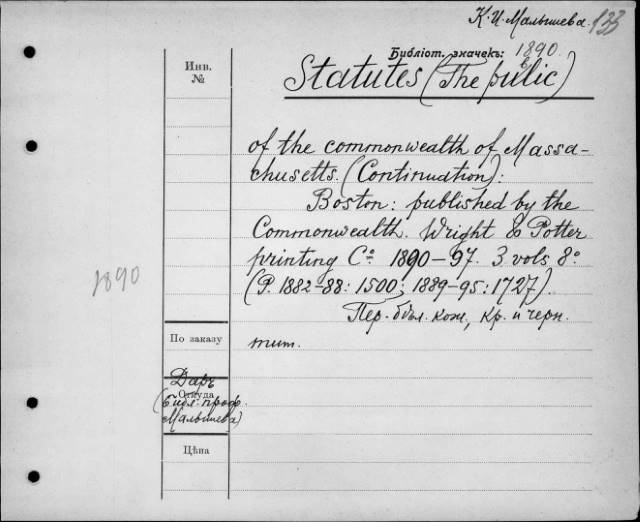 К. И. Малышева. 133
Библіот. значекъ: 1890.
Инв.
№
Statutes (The public)
of the commonwealth of Massa-
chusetts. (Continuation):
Boston: published by the
Commonwealth. Wright & Potter
printing Cº 1890-97. 3 vols 8º
(P. 1882-88: 1500; 1889-95: 1727).
1890
Пер. бѣл. кож., кр. и черн.
По заказу
тит.
Даръ
Откуда
(библ. проф.
Малышева)
Цѣна